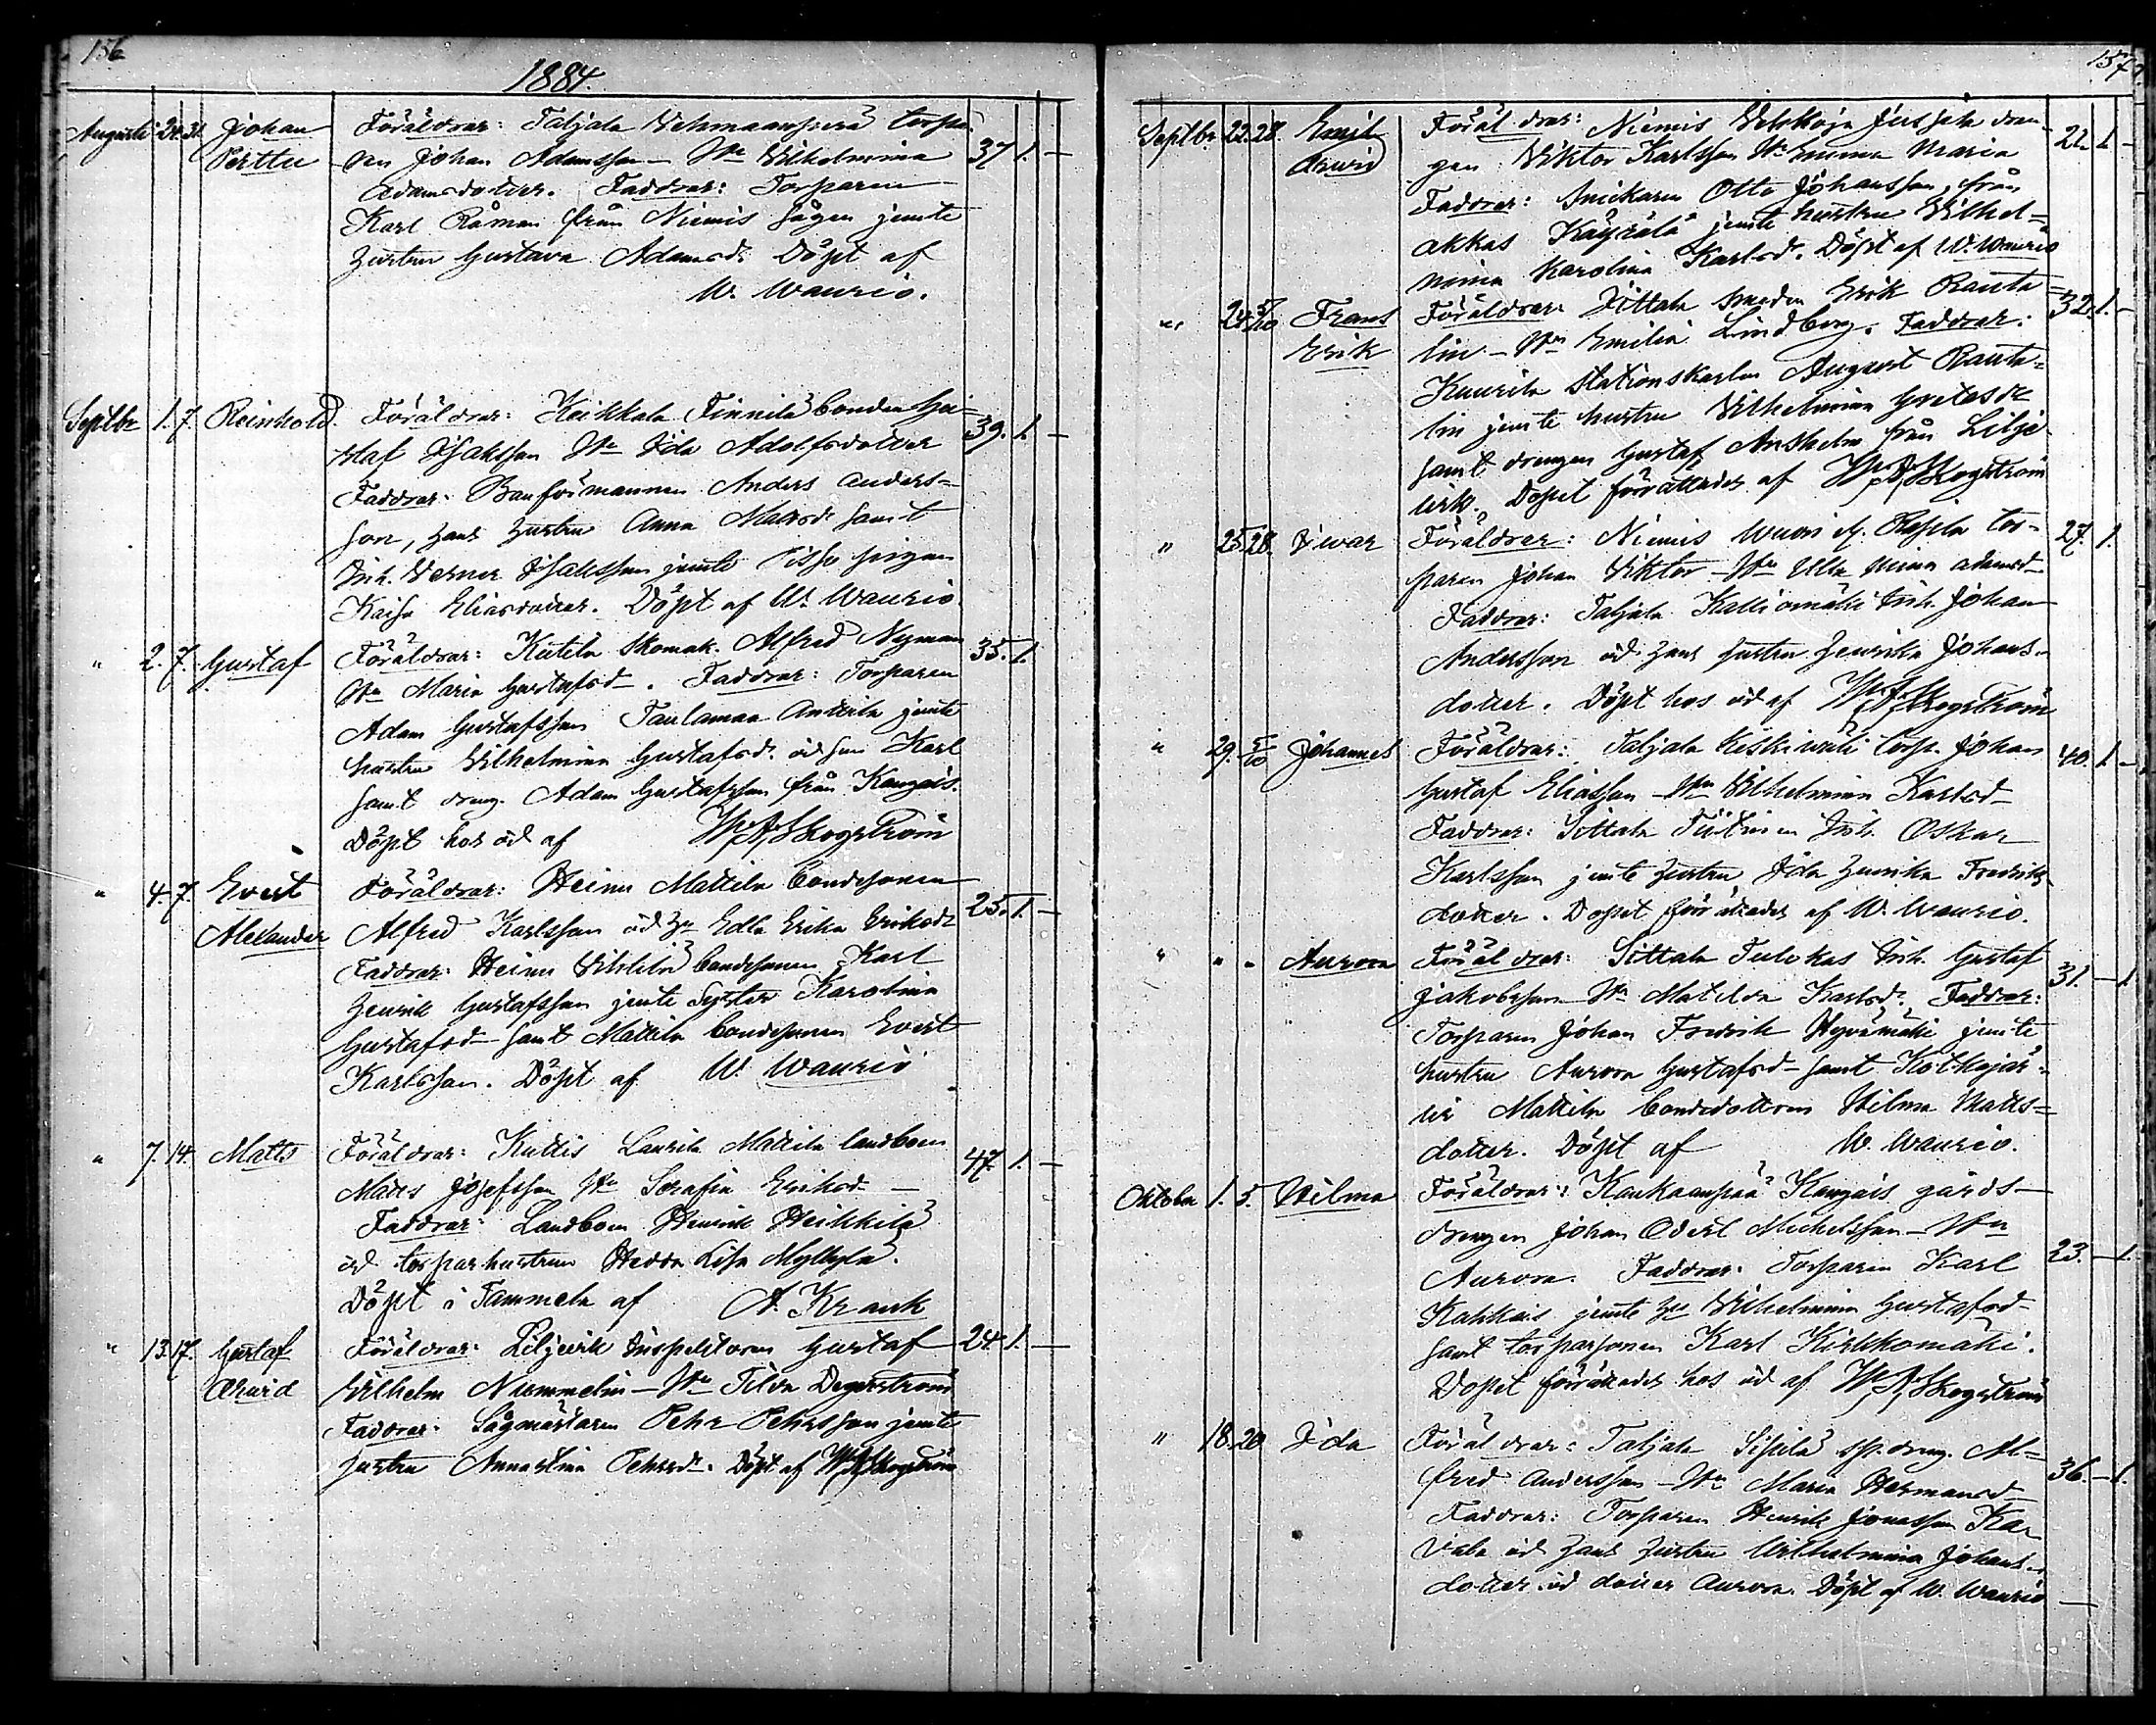 156
1884.
Augusti 24. 31. Johan Föräldrar: Taljala Vehmaanperä torpa-
Perttu ren Johan Adamsson - Hu Wilhelmina 37 1. -
Adamsdotter. Faddrar: Torparen
Karl Råman från Niemis sågen jemte
hustru Gustava Adamsd. Döpt af
W. Waurio.
Septbr 1. 7. Reinhold. Föräldrar: Keikkala Finnilä bonden Gu-
staf Isaksson Hu Ida Adolfsdotter 39. 1. -
Faddrar: Banförmannen Anders Anders=
son, hans hustru Anna Mattsd. samt
Inh. Verner Isaksson jemte pigan
Kaisa Eliasdotter. Döpt af W. Waurio
" 2. 7. Gustaf Föräldrar: Kutila skomak. Alfred Nyman 35. 1.
Hu Maria Gustafsd. Faddrar: Torparen
Adam Gustafsson Taulamaa Anttila jemte
hustru Wilhelmina Gustafsd. och son Karl
samt dreng. Adam Gustafsson från Kangais.
Döpt hos och af W. A. Skogström
" 4. 7. Evert Föräldrar: Heinu Mattila bondesonen 25. 1. -
Alexander Alfred Karlsson och Hu Edla Erika Eriksdr
Faddrar: Heinu bondesonen Karl
Henrik Gustafsson jemte syster Karolina
Gustafsd - samt Mattila bondesonen Evert
Karlsson. Döpt af W. Waurio
" 7. 14. Matts Föräldrar: Kuttis Laurila Mattila landboen 47 1. -
Matts Josefsson Hu Serafia Eriksd -
Faddrar: Landboen Henrik Heikkilä
och torparhustrun Hedda Lisa Myllylä.
Döpt i Tammela af A. Krank
" 13. 17. Gustaf Föräldrar: Liljevik Inspektoren Gustaf 24. 1. -
Arvid Vilhelm Nummelin - Hu Tilda Degerström
Faddrar: Sågmästaren Pehr Pehrsson jemte
hustru Annastina Pehrsd. Döpt af W A Skogström
157
Septbr 22. 28. Emil Föräldrar: Niemis Vehkoja Jussila dren- 22. 1. -
Arvid gen Viktor Karlsson Hu Emma Maria
Faddrar: Snickaren Otto Johansson, från
akkas Käyrälä jemte hustru Wilhel=
mina Karolina Karlsd. Döpt af W. Waurio
" 24. 5/10 Frans Föräldrar: Sittala smeden Erik Rauta= 32. 1. -
Erik lin - Hu Emilia Lindberg. Faddrar:
Kuurila Stationskarlen August Rauta=
lin jemte hustru Vilhelmina Gretasdr
samt drengen Gustaf Ansholm från Lilje-
vik. Dopet förrättades af W. A. Skogström
" 25. 28. Ivar Föräldrar: Niemis Wuori Rapila tor- 27. 1.
paren Johan Viktor - Hu Ulla Mina Adamsd -
Faddrar: Taljala Kalliomäki Inh. Johan
Andersson och hans hustru Henrika Johans-
dotter. Döpt hos och af W. A. Skogström
" 29. 5/10 Johannes Föräldrar: Taljala Keskiwäli torp. Johan 40. 1. -
Gustaf Eliasson - Hu Wilhelmina Karlsd -
Faddrar: Sittala Inh. Oskar
Karlsson jemte hustru Ida Henrika Fredriks-
dotter. Dopet förrättades af W. Waurio.
" " " Aurora Föräldrar: Sittala Tulokas Inh. Gustaf 31. - 1.
Jakobsson - Hu Matilda Karlsd. Faddrar:
Torparen Johan Fredrik Hyvämäki jemte
hustru Aurora Gustafsd - samt Kotkajär-
vis Mattila bondedottren Hilma Matts=
dotter. Döpt af W. Waurio.
Oktober 1. 5. Hilma Föräldrar: Kaukaanpää Kangais gårds-
drengen Johan Edert Mickelsson - Hu 23. - 1.
Aurora. Faddrar: Torparen Karl
Kakkais jemte Hu Wilhelmina Gustafsd -
samt torparsonen Karl Kirkkomäki.
Dopet förrättades hos och af W. A. Skogström
" 18. 20. Ida Föräldrar: Taljala Sipilä sp. dreng. Al-
fred Andersson - Hu Maria Hermansd - 36. - 1.
Faddrar: Torparen Henrik Jonasson Kar
vala och hans hustru Wilhelmina Johans-
dotter och dotter Aurora. Döpt af W. Waurio